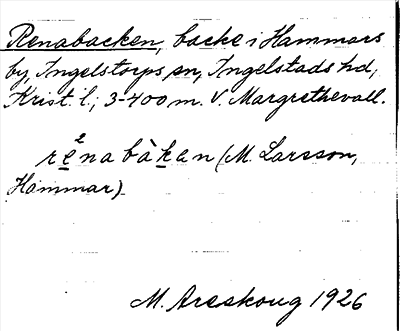 Renabacken, backe i Hammars
by, Ingelstorps sn, Ingelstads hd,
Krist. l.; 3-400 m. V. Margrethevall.
rēnabàkan (M. Larsson,
Hammar)
M. Areskoug 1926